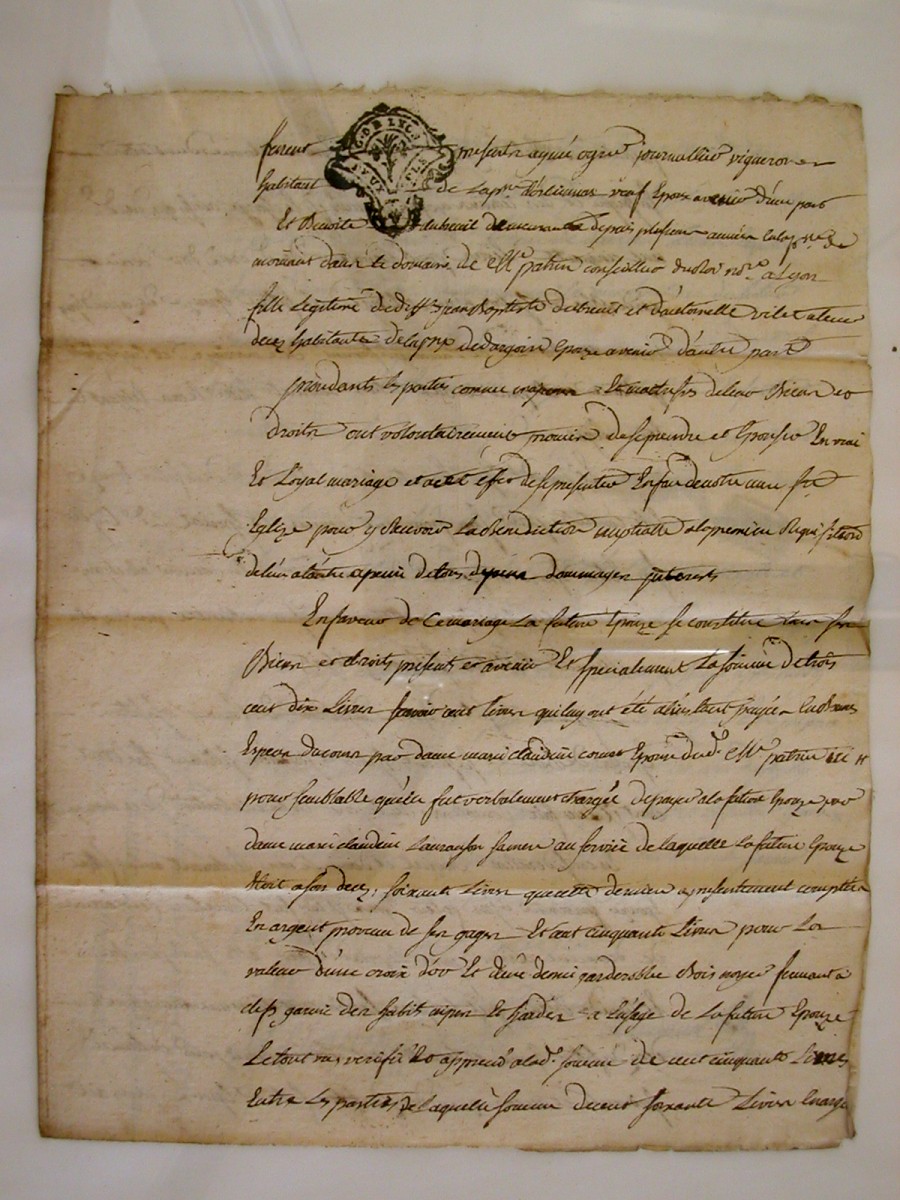 furent presents aymé ogié journallier vigneron
habitant de lapsse veuf Epoux avenir d'une part
Et Benoite dubreuil demeurante depuis plusieurs années
mornant dans le domaine de Mr patrin conseiller du Roi a Lyon
fille legitime de deffts jean Baptiste dubreuil et d'antoinette
habitants de la de dargoire Epoze avenir d'autre part
procedants les parties comme majeurs Et maitresses de leurs Biens et
droits ont volontairement promis de se prendre et Epouser En vrai
Et Loyal mariage et a cet effet de se presenter En face de notre mere ste
Eglize pour y Recevoir La Benediction nuptialle a la premiere Requisition
de l'un a l'autre a peine de tous depens dommages interests
En faveur de Ce mariage La future Epouze se constitue tous ses
Biens et droits presents et avenir Et specialement La somme de trois
cent dix Livres sçavoir cent livres qui luy ont été
Especes du cours par dame marie claudine Epouse dud. Mr patrin
pour semblable qu'elle fut verbalement chargée de payer a la future Epouze par
dame marie claudine sa mere au service de laquelle La future Epouze
étoit a son deces, soixante Livres que cette derniere a presentement comptés
En argent provenu de ses gages Et cent cinquante Livres pour La
valeur d'une croix d'or Et d'une demi garderobbe Bois noyer fermant a
clef garnie des habits nipes Et hardes a l'usage de La future Epouze
Le tout vu verifié et apprecié a lad. somme de cent cinquante Livres
Entre Les parties de laquelle somme de cent soixante Livres